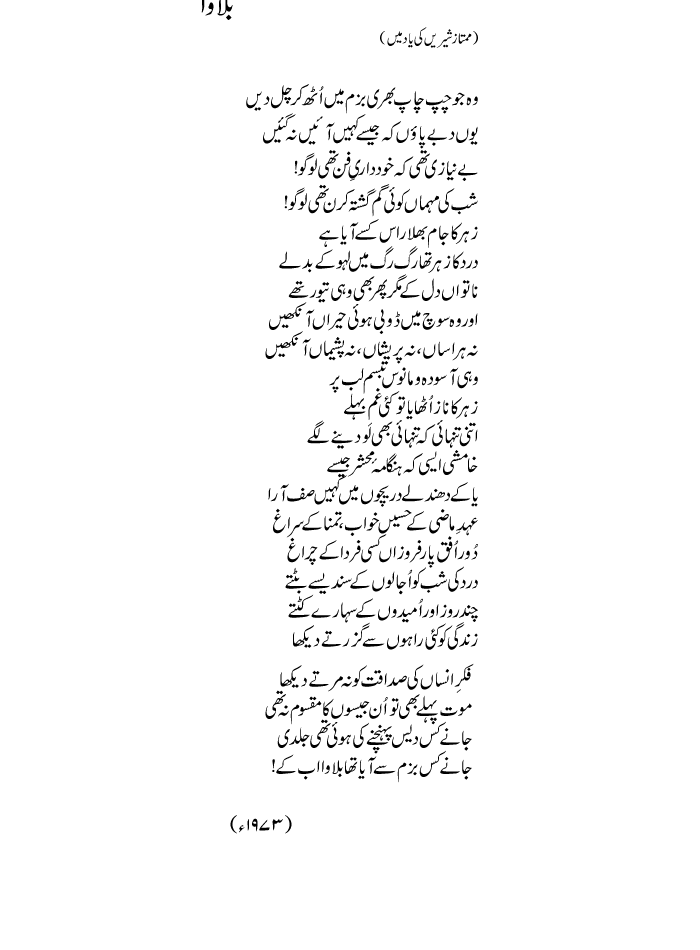 بلاوا
(ممتاز شیریں کی یاد میں)
وہ جو چپ چاپ بھری بزم میں اُٹھ کر چل دیں
یوں دبے پاؤں کہ جیسے کہیں آئیں نہ گئیں
بے نیازی تھی کہ خودداریِ فن تھی لوگو!
شب کی مہماں کوئی گم گشتہ کرن تھی لوگو!
زہر کا جام بھلا راس کسے آیا ہے
درد کا زہر تھا رگ رگ میں لہو کے بدلے
ناتواں دل کے مگر پھر بھی وہی تیور تھے
اور وہ سوچ میں ڈوبی ہوئی حیراں آنکھیں
نہ ہراساں، نہ پریشاں، نہ پشیماں آنکھیں
وہی آسودہ و مانوس تبسم لب پر
زہر کا ناز اُٹھایا تو کئی غم بہلے
اتنی تنہائی کہ تنہائی بھی لَو دینے لگے
خامشی ایسی کہ ہنگامۂ محشر جیسے
یا کے دھندلے دریچوں میں کہیں صف آرا
عہدِ ماضی کے حسیں خواب، تمنا کے سراغ
دُور اُفق پار فروزاں کسی فردا کے چراغ
درد کی شب کو اُجالوں کے سندیسے بٹتے
چند روز اور اُمیدوں کے سہارے کٹتے
زندگی کو کئی راہوں سے گزرتے دیکھا
فکرِ انساں کی صداقت کو نہ مرتے دیکھا
موت پہلے بھی تو اُن جیسوں کا مقسوم نہ تھی
جانے کس دیس پہنچنے کی ہوئی تھی جلدی
جانے کس بزم سے آیا تھا بلاوا اب کے!
(۱۹۷۳ء)